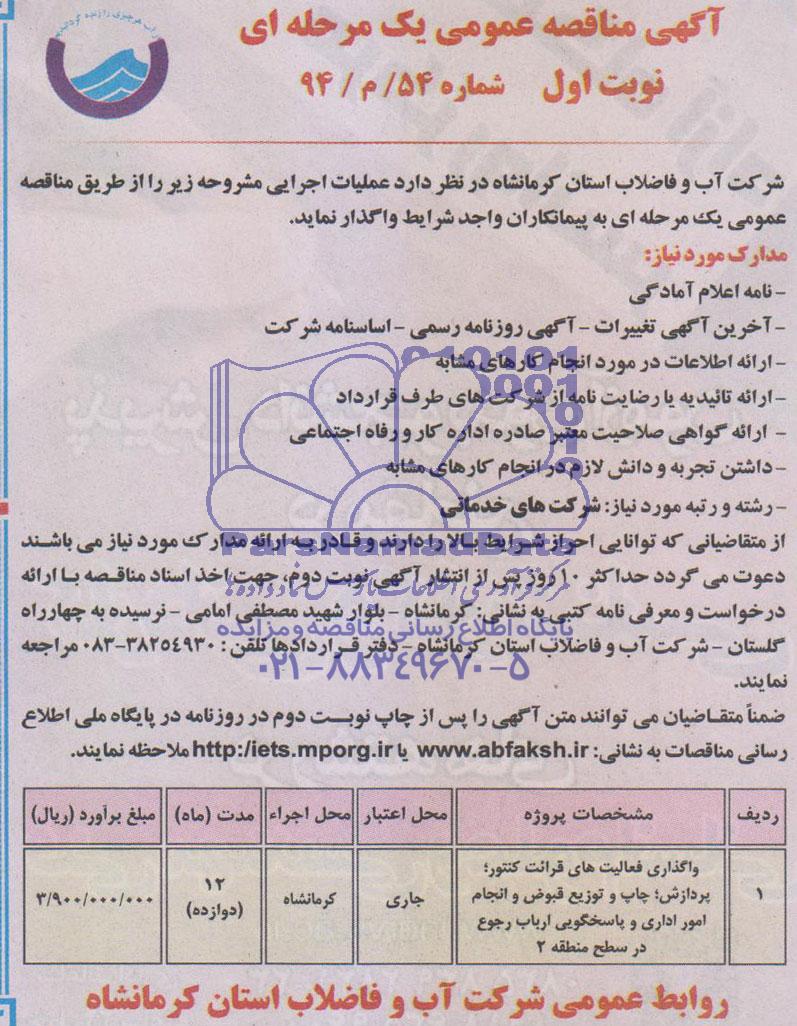 آگهی مناقصه عمومی یک مرحله ای
نوبت اول شماره ۵۴/م/۹۴
شرکت آب و فاضلاب استان کرمانشاه در نظر دارد عملیات اجرایی مشروحه زیر را از طریق مناقصه
عمومی یک مرحله ای به پیمانکاران واجد شرایط واگذار نماید.
مدارک مورد نیاز:
- نامه اعلام آمادگی
- آخرین آگهی تغییرات - آگهی روزنامه رسمی - اساسنامه شرکت
- ارائه اطلاعات در مورد انجام کارهای مشابه
- ارائه تائیدیه یا رضایت نامه از شرکت های طرف قرارداد
- ارائه گواهی صلاحیت معتبر صادره اداره کار و رفاه اجتماعی
- داشتن تجربه و دانش لازم در انجام کارهای مشابه
- رشته و رتبه مورد نیاز: شرکت های خدماتی
از متقاضیانی که توانایی احراز شرایط بالا را دارند و قادر به ارائه مدارک مورد نیاز می باشند
ParsNamadData
دعوت می گردد حداکثر ۱۰ روز پس از انتشار آگهی نوبت دوم، جهت اخذ اسناد مناقصه با ارائه
درخواست و معرفی نامه کتبی به نشانی: کرمانشاه - بلوار شهید مصطفی امامی - نرسیده به چهارراه
پایگاه اطلاع رسانی مناقصه و مزایده
گلستان - شرکت آب و فاضلاب استان کرمانشاه - دفتر قراردادها تلفن: ۳۸۲۵۴۹۳۰-۰۸۳ مراجعه
۰۲۱-۸۸۳۴۹۶۷۰-۵
نمایند.
ضمناً متقاضیان می توانند متن آگهی را پس از چاپ نوبت دوم در روزنامه در پایگاه ملی اطلاع
رسانی مناقصات به نشانی: www.abfaksh.ir یا http:/iets.mporg.ir ملاحظه نمایند.
ردیف مشخصات پروژه محل اعتبار محل اجراء مدت (ماه) مبلغ برآورد (ریال)
واگذاری فعالیت های قرائت کنتور؛
۱ پردازش؛ چاپ و توزیع قبوض و انجام جاری کرمانشاه ۱۲ ۳/۹۰۰/۰۰۰/۰۰۰
امور اداری و پاسخگویی ارباب رجوع (دوازده)
در سطح منطقه ۲
روابط عمومی شرکت آب و فاضلاب استان کرمانشاه